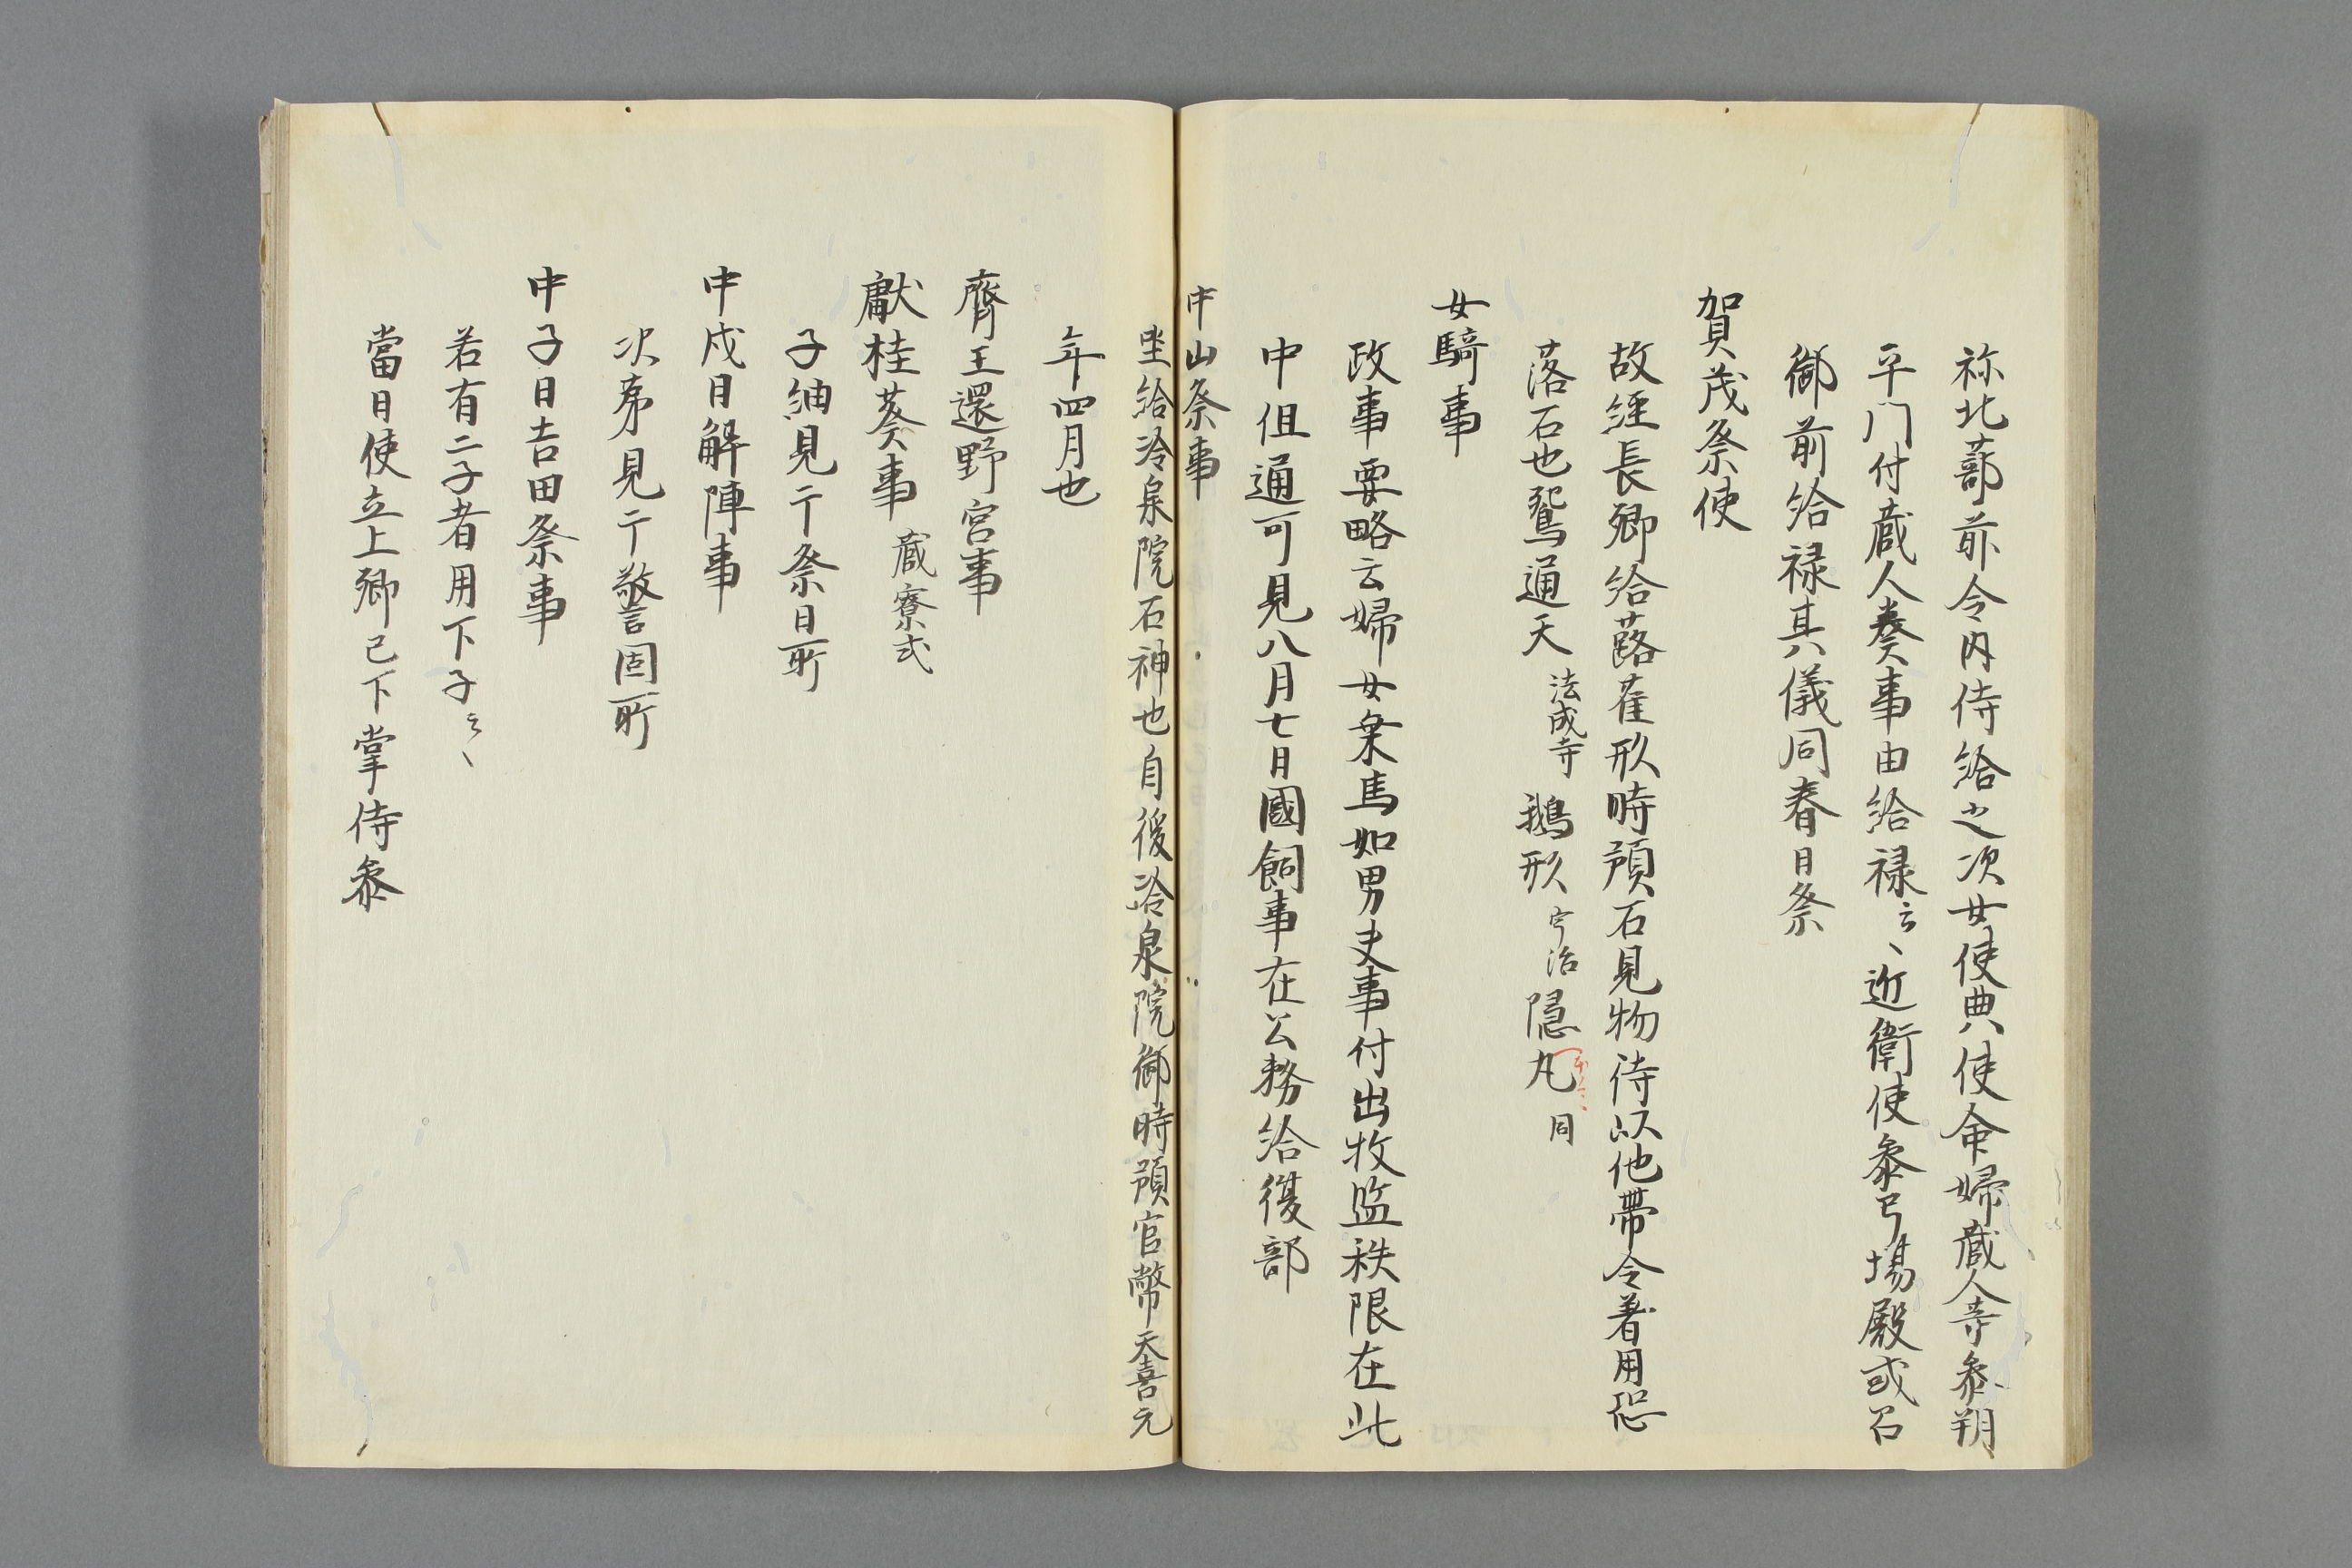 祢北蔀前令内侍給之次女使典使命婦蔵人等参朔
平门付蔵人奏事由給禄云〻近衛使参弓場殿或召
御前給禄其儀同春日祭
賀茂祭使
故経長卿給蕗萑形時預石見物待以他帶令著用恐
落石也鴛通天 法成寺 鵝形 宇治 隠丸 同
女騎事
政事要略云婦女乗馬如男夫事付出牧監秩限在此
中但通可見八月七日國飼事在公務給復部
中山祭事
坐給冷泉院石神也自後冷泉院御時預官幣天喜元
年四月也
齊王還野宮事
献桂葵事 蔵寮式
子細見于祭日所
中戌日解陣事
次第見于警固所
中子日吉田祭事
若有二子者用下子云〻
當日使立上卿已下掌侍参